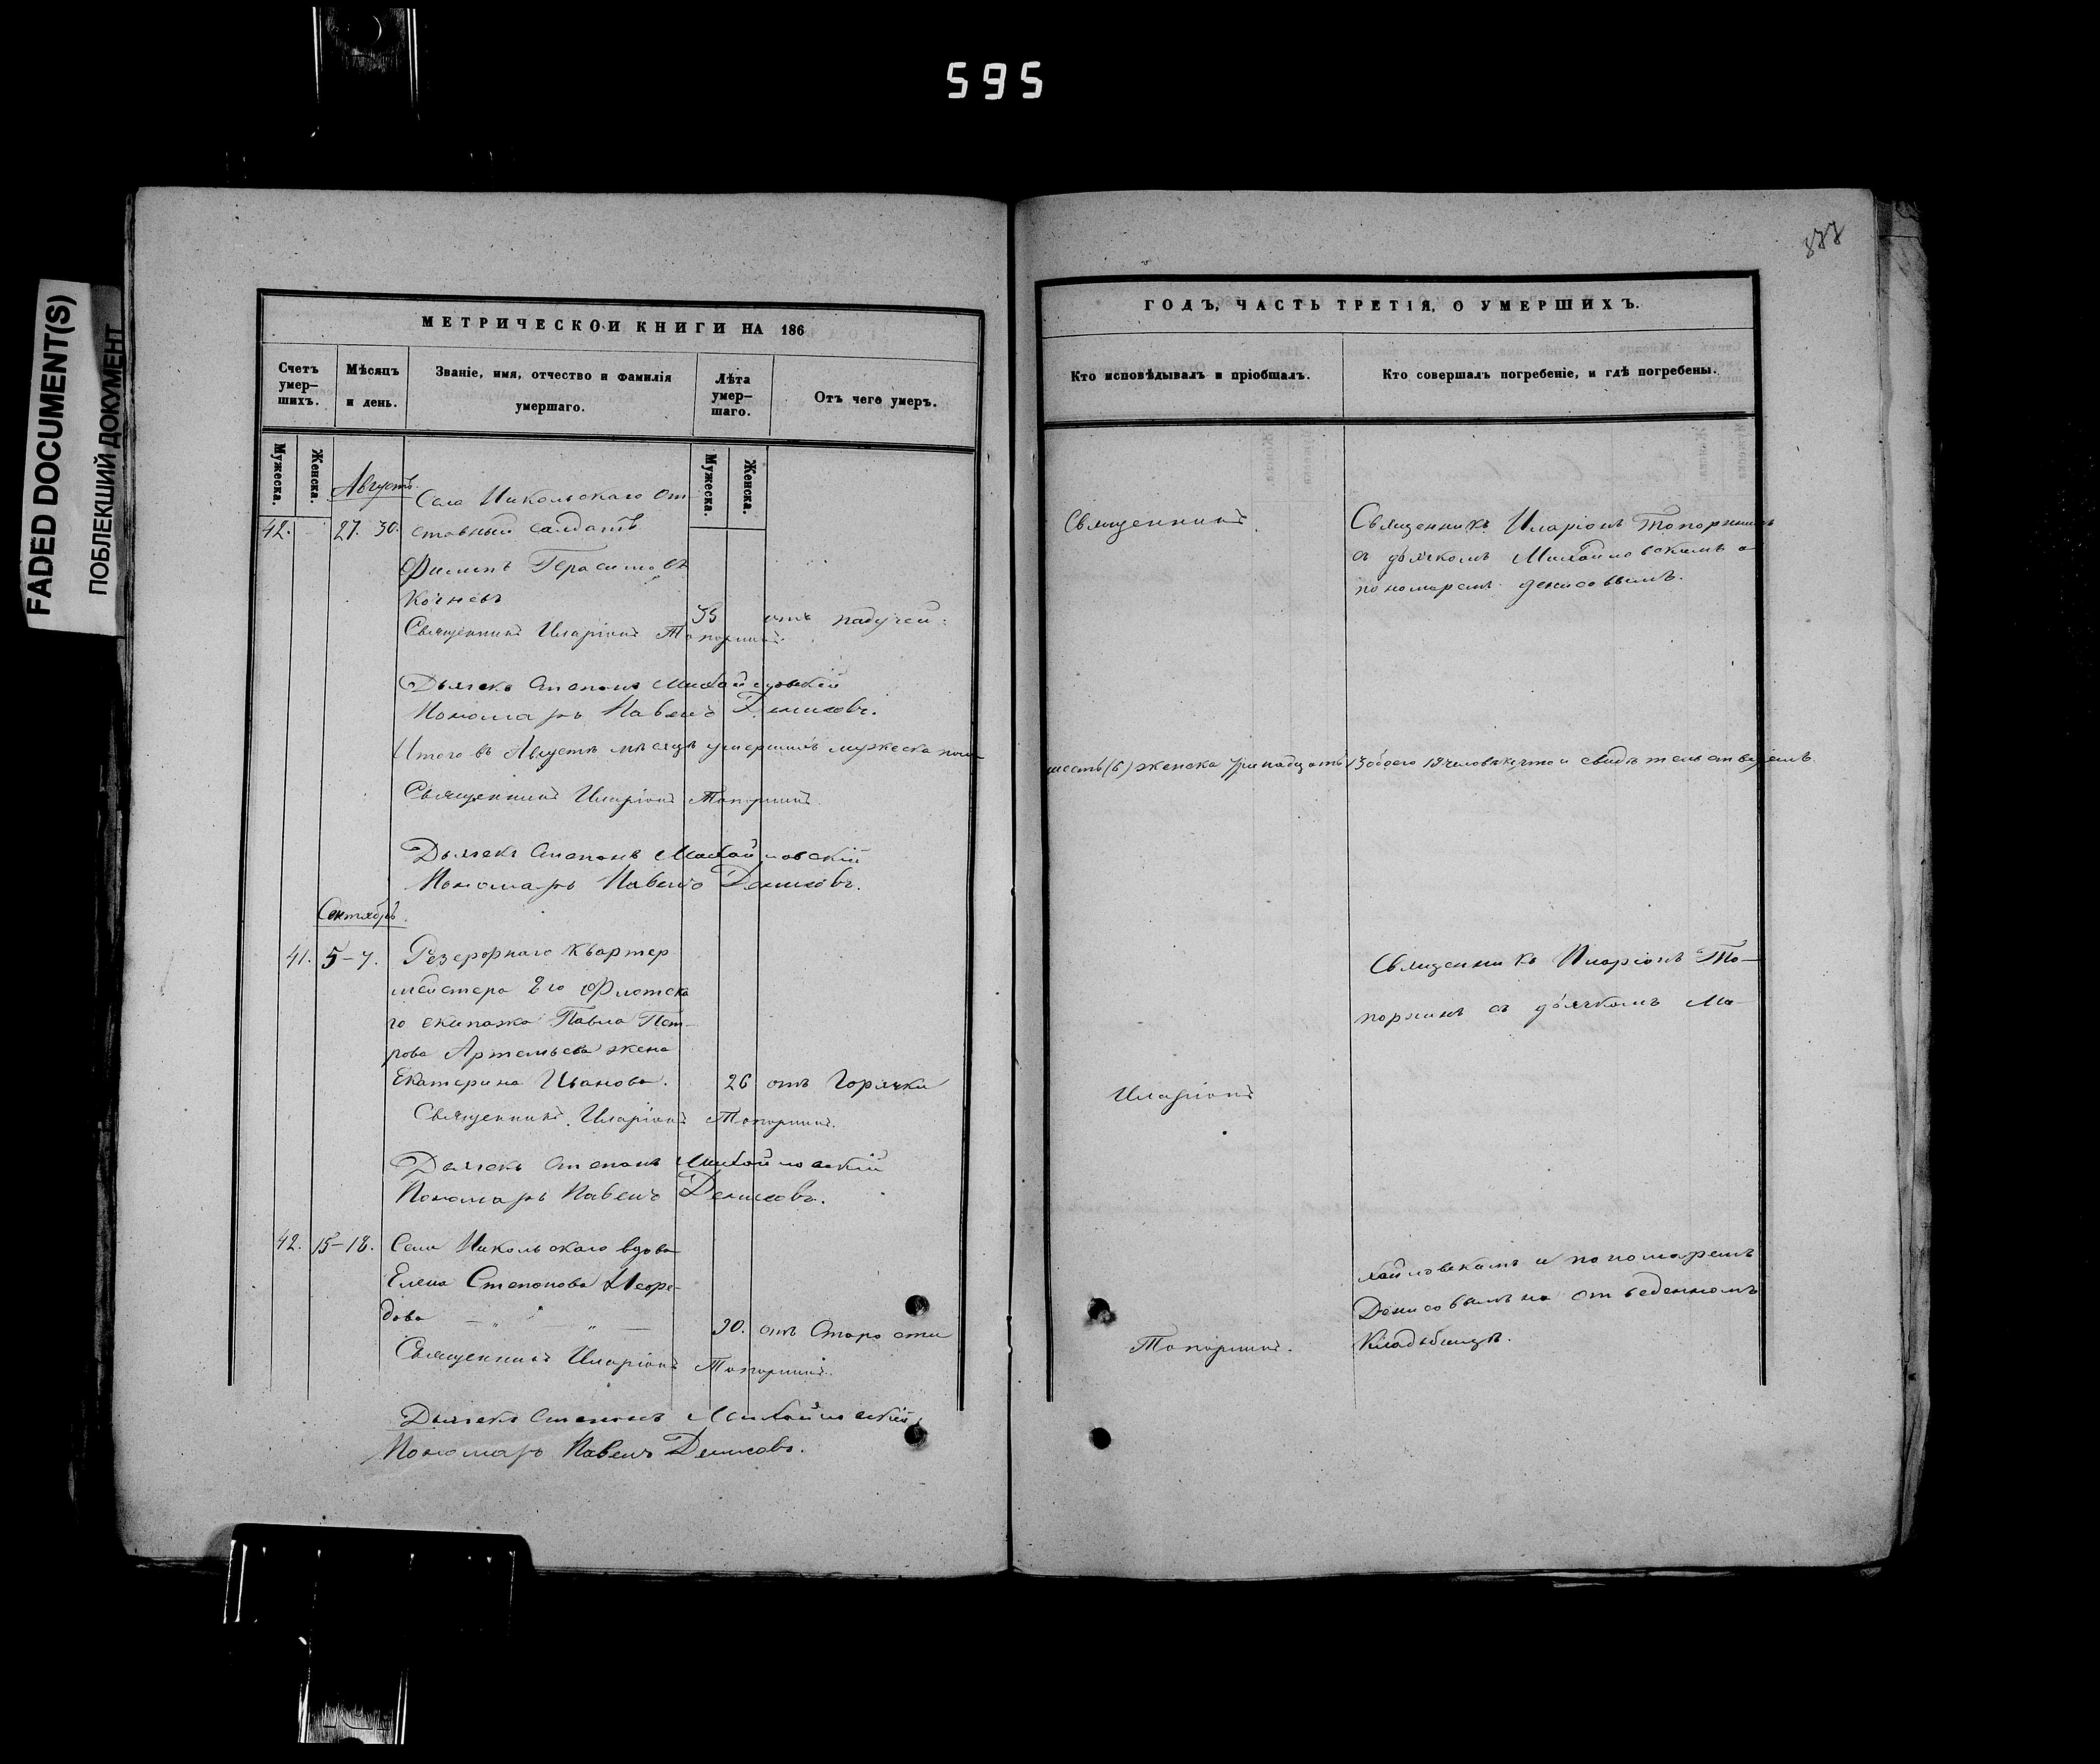 595
FADED DOCUMENT(S)
ПОБЛЕКШИЙ ДОКУМЕНТ
МЕТРИЧЕСКОЙ КНИГИ НА 186
Счетъ умер-шихъ.
Мѣсяцъ и день.
Званіе, имя, отчество и фамилія умершаго.
Лѣта умер-шаго.
Отъ чего умеръ.
Мужеска.
Женска.
Мужеска.
Женска.
Августъ.
Села Никольскаго от
42. 27. 30. ставный салдатъ
Филипъ Герасимовъ
Кочневъ
35 отъ падучей.
Священникъ Иларіонъ Топорнинъ.
Дьячекъ Степанъ Михайловскій
Пономарь Павелъ Денисовъ.
Итого въ Августѣ мѣсяцѣ умершихъ мужеска пола
Священникъ Иларіонъ Топорнинъ.
Дьячекъ Степанъ Михайловскій
Пономарь Павелъ Денисовъ.
Сентябрь.
41. 5-7. Квартер
мейстера 2го Флотска
го екипажа Павла Пет-
рова Артемьева жена
Екатерина Иванова. 26 отъ Горячки
Священникъ Иларіонъ Топорнинъ.
Дьячекъ Степанъ Михайловскій
Пономарь Павелъ Денисовъ.
42. 15-18. Села Никольскаго вдова
Елена Степанова
дова
90. отъ Старости
Священникъ Иларіонъ Топорнинъ.
Дьячекъ Степанъ Михайловскій,
Пономарь Павелъ Денисовъ.
ГОДЪ, ЧАСТЬ ТРЕТІЯ, О УМЕРШИХЪ.
Кто исповѣдывалъ и пріобщалъ.
Кто совершалъ погребеніе, и гдѣ погребены.
Священникъ
Священникъ Иларіонъ Топорнинъ
съ дьячкомъ Михайловскимъ и
пономаремъ Денисовымъ.
шесть (6) женска тринадцать 13 обоего 19 человѣкъ что и свидѣтельствуемъ.
Священникъ Иларіонъ То-
порнинъ съ дьячкомъ Ми-
Иларіонъ
хайловскимъ и пономаремъ
Денисовымъ на отведенномъ
Топорнинъ.
Кладбищѣ.